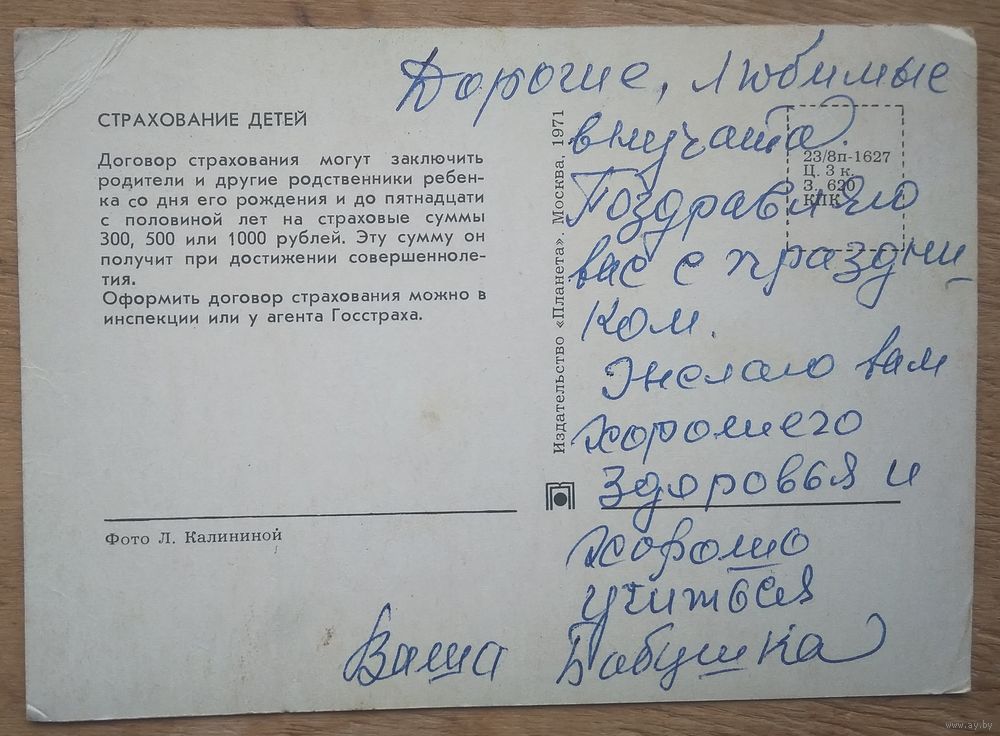 СТРАХОВАНИЕ ДЕТЕЙ
Договор страхования могут заключить
родители и другие родственники ребен-
ка со дня его рождения и до пятнадцати
с половиной лет на страховые суммы
300, 500 или 1000 рублей. Эту сумму он
получит при достижении совершенноле-
тия.
Оформить договор страхования можно в
инспекции или у агента Госстраха.
Фото Л. Калининой
Издательство «Планета» Москва, 1971
23/8п-1627
Ц. 3 к.
З. 620
КПК
Дорогие, любимые
внучата.
Поздравляю
вас с праздни-
ком.
Желаю вам
хорошего
здоровья и
хорошо
учиться
Ваша Бабушка
www.ay.by